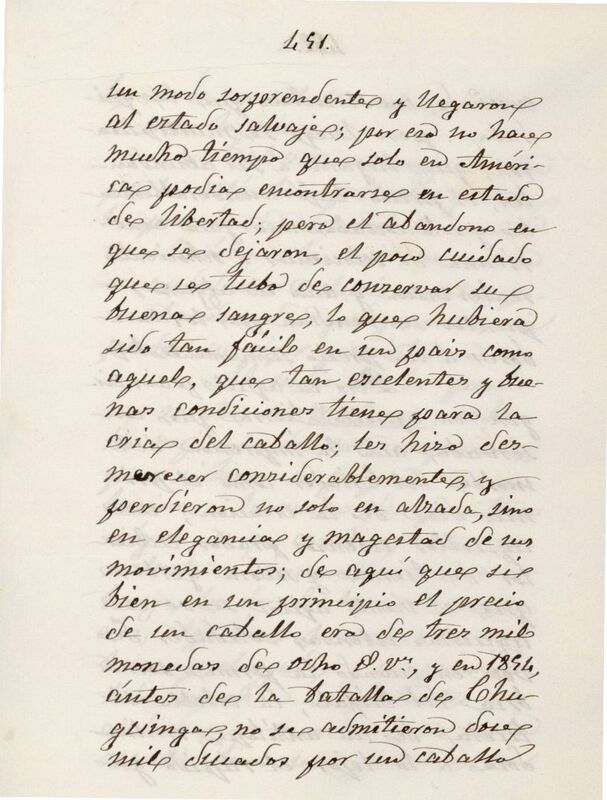 451.
un modo sorprendente y llegaron
al estado salvaje; por eso no hace
mucho tiempo que solo en Améri-
ca podia encontrarse en estado
de libertad; pero el abandono en
que se dejaron, el poco cuidado
que se tubo de conservar su
buena sangre, lo que hubiera
sido tan fácil en un pais como
aquel, que tan escelentes y bue-
nas condiciones tiene para la
cria del caballo; les hizo des-
merecer considerablemente, y
perdieron no solo en alzada, sino
en elegancia y magestad de sus
movimientos; de aquí que si
bien en un principio el precio
de un caballo era de tres mil
monedas de ocho r.s v.n, y en 1854,
ántes de la batalla de Chu-
quinga, no se admitieron doce
mil ducados por un caballo